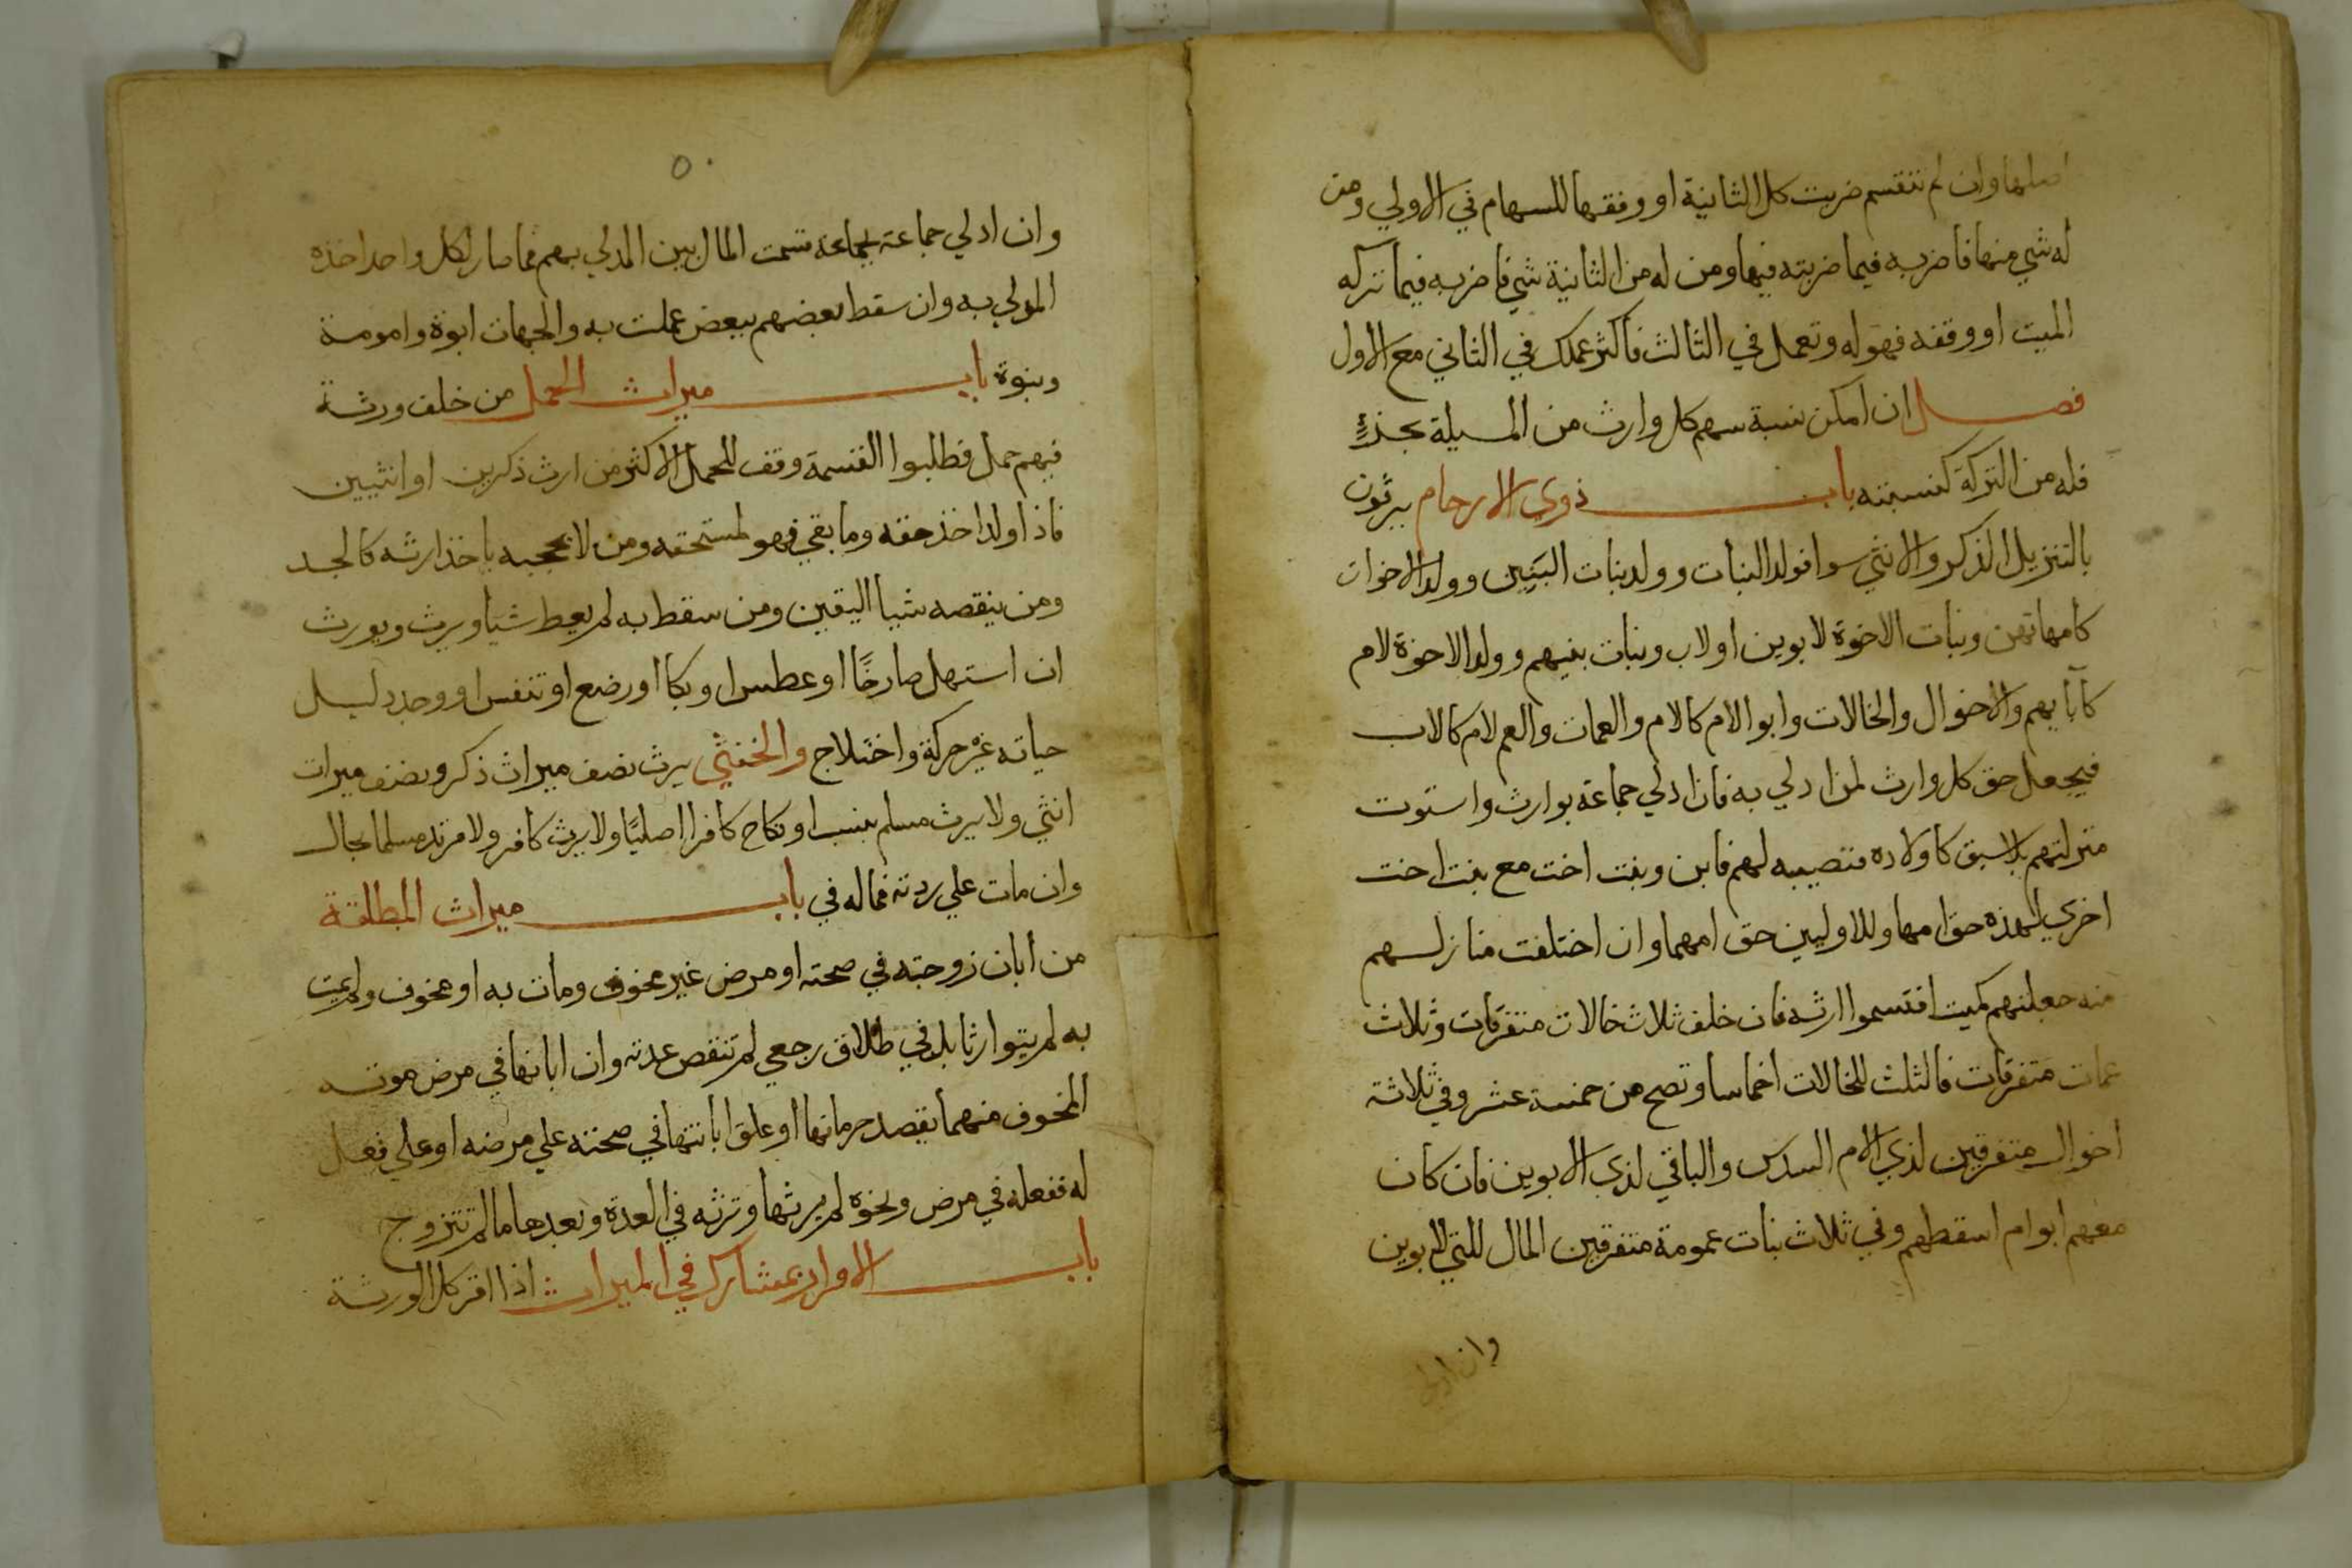 اصلها وان لم تنقسم ضربت كل الثانية او وفقها للسهام في الاولي ومن
له شي منها فاضربه فيما ضربته فيها ومن له من الثانية شي فاضربه فيما تركه
الميت او وقفه فهو له وتعمل في الثالث فاكثر عملك في الثاني مع الاول
فصل ان امكن نسبة سهم كل وارث من المسيلة بجذءٍ
فله من التركة كنسبته باب ذوي الارحام يرثون
بالتنزيل الذكر والانثي سوا فولد البنات وولد بنات البنين وولد الاخوات
كامهاتهن وبنات الاخوة لابوين او لاب وبنات بنيهم وولد الاخوة لام
كآبآيهم والاخوال والخالات وابو الام كالام والعمات والعم لام كالاب
فيجعل حق كل وارث لمن ادلي به فان ادلي جماعة بوارث واستوت
منزلتهم بلا سبق كاولاده فنصيبه لهم فابن وبنت اخت مع بنت اخت
اخري لهذه حق امها وللاوليين حق امهما وان اختلفت منازلهم
منه جعلتهم كميت اقتسموا ارثه فان خلف ثلاث خالات متفرقات وثلاث
عمات متفرقات فالثلث للخالات اخماسا وتصح من خمسة عشر وفي ثلاثة
اخوال متفرقين لذي الام السدس والباقي لذي الابوين فان كان
معهم ابو ام اسقطهم وفي ثلاث بنات عمومة متفرقين المال للتي للابوين
وان ادلي
٥٠
وان ادلي جماعة بجماعة قسمت المال بين المدلي بهم فما صار لكل واحد اخذه
المدلي به وان سقط بعضهم ببعض عملت به والجهات ابوة وامومة
وبنوة باب ميراث الحمل من خلف ورثة
فيهم حمل فطلبوا القسمة وقف للحمل الاكثر من ارث ذكرين او انثيين
فاذا ولد اخذ حقه وما بقي فهو لمستحقه ومن لا يحجبه ياخذ ارثه كالجد
ومن ينقصه شيا اليقين ومن سقط به لم يعط شيا ويرث ويورث
ان استهل صارخًا او عطس او بكا او رضع او تنفس او وجد دليل
حياته غير حركة واختلاج والخنثي يرث نصف ميراث ذكر ونصف ميراث
انثي ولا يرث مسلم بنسب او نكاح كافرا اصليًا ولا يرث كافر ولا مرتد مسلما بحال
وان مات علي ردته فماله في باب ميراث المطلقة
من ابان زوجته في صحته او مرض غير مخوف ومات به او مخوف ولم يمت
به لم يتوارثا بل في طلاق رجعي لم تنقص عدته وان ابانها في مرض موته
المخوف منهما بقصد حرمانها او علق ابانتها في صحته علي مرضه او علي فعل
له ففعله في مرض ونحوه لم يرثها وترثه في العدة وبعدها ما لم تتزوج
باب الاقرار بمشارك في الميراث اذا اقر كل الورثة